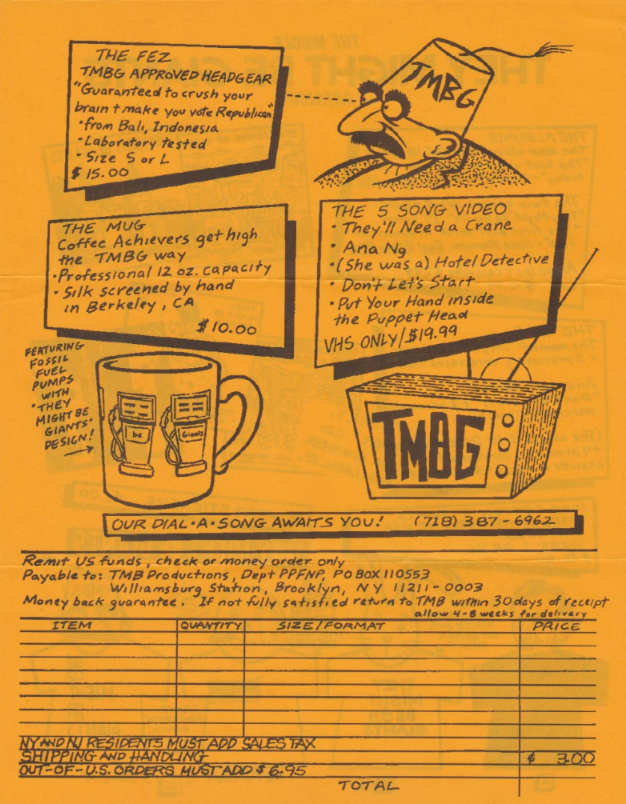 THE FEZ
TMBG APPROVED HEADGEAR
"Guaranteed to crush your
brain + make you vote Republican"
• from Bali, Indonesia
• Laboratory tested
• Size S or L
$15.00
TMBG
THE MUG
Coffee Achievers get high
the TMBG way
• Professional 12 oz. capacity
• Silk screened by hand
in Berkeley, CA
$10.00
THE 5 SONG VIDEO
• They'll Need a Crane
• Ana Ng
• (She was a) Hotel Detective
• Don't Let's Start
• Put Your Hand inside
the Puppet Head
VHS ONLY/$19.99
FEATURING
FOSSIL
FUEL
PUMPS
WITH
"THEY
MIGHT BE
GIANTS"
DESIGN!
be
Giants
TMBG
OUR DIAL•A•SONG AWAITS YOU! (718) 387-6962
Remit US funds, check or money order only
Payable to: TMB Productions, Dept PPFNP, PO BOX 110553
Williamsburg Station, Brooklyn, NY 11211-0003
Money back guarantee. If not fully satisfied return to TMB within 30 days of receipt
allow 4-8 weeks for delivery
ITEM QUANTITY SIZE/FORMAT PRICE
NY AND NJ RESIDENTS MUST ADD SALES TAX
SHIPPING AND HANDLING $ 3.00
OUT-OF-U.S. ORDERS MUST ADD $6.95
TOTAL